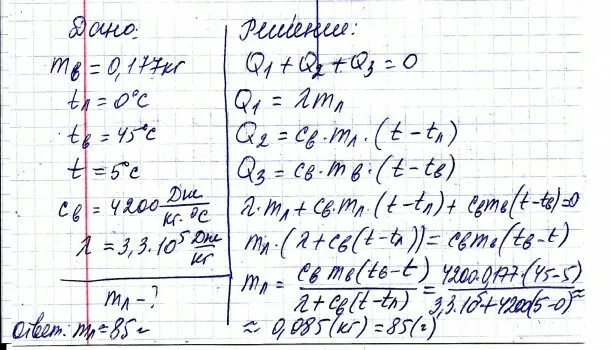 Дано:
m_в = 0,177кг
t_л = 0°C
t_в = 45°C
t = 5°C
c_в = 4200 Дж/кг·°C
λ = 3,3·10⁵ Дж/кг
m_л - ?
Ответ: m_л ≈ 85г
Решение:
Q₁ + Q₂ + Q₃ = 0
Q₁ = λm_л
Q₂ = c_в·m_л·(t - t_л)
Q₃ = c_в·m_в·(t - t_в)
λ·m_л + c_в·m_л·(t - t_л) + c_в m_в(t - t_в) = 0
m_л·(λ + c_в(t - t_л)) = c_в m_в(t_в - t)
m_л = c_в m_в(t_в - t)/λ + c_в(t - t_л) = 4200·0,177·(45-5)/3,3·10⁵ + 4200(5-0) ≈
≈ 0,085(кг) = 85(г)